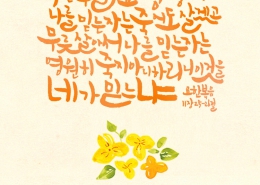 나를 믿는 자는 죽어도 살겠고
무릇 살아서 나를 믿는 자는
영원히 죽지 아니하리니 이것을
네가 믿느냐
요한복음
11장 25-26절